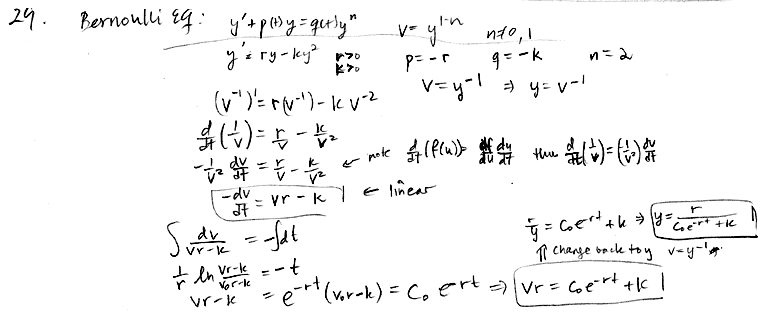 29. Bernoulli Eq: y' + p(t)y = q(t)yⁿ v = y^(1-n) n≠0,1
y' = ry - ky² r>0 k>0 p = -r q = -k n = 2
v = y⁻¹ ⇒ y = v⁻¹
(v⁻¹)' = r(v⁻¹) - k v⁻²
d/dt (1/v) = r/v - k/v²
-1/v² dv/dt = r/v - k/v² ← note d/dt (f(u)) = df/du du/dt thus d/dt (1/v) = (1/v²) dv/dt
-dv/dt = vr - k ← linear
∫ dv/(vr-k) = -∫dt
1/r ln (vr-k)/(v₀r-k) = -t
vr-k = e^(-rt) (v₀r-k) = C₀ e^(-rt) ⇒ vr = C₀e^(-rt) + k
⇑ change back to y v = y⁻¹
r/y = C₀e^(-rt) + k ⇒ y = r/(C₀e^(-rt) + k)